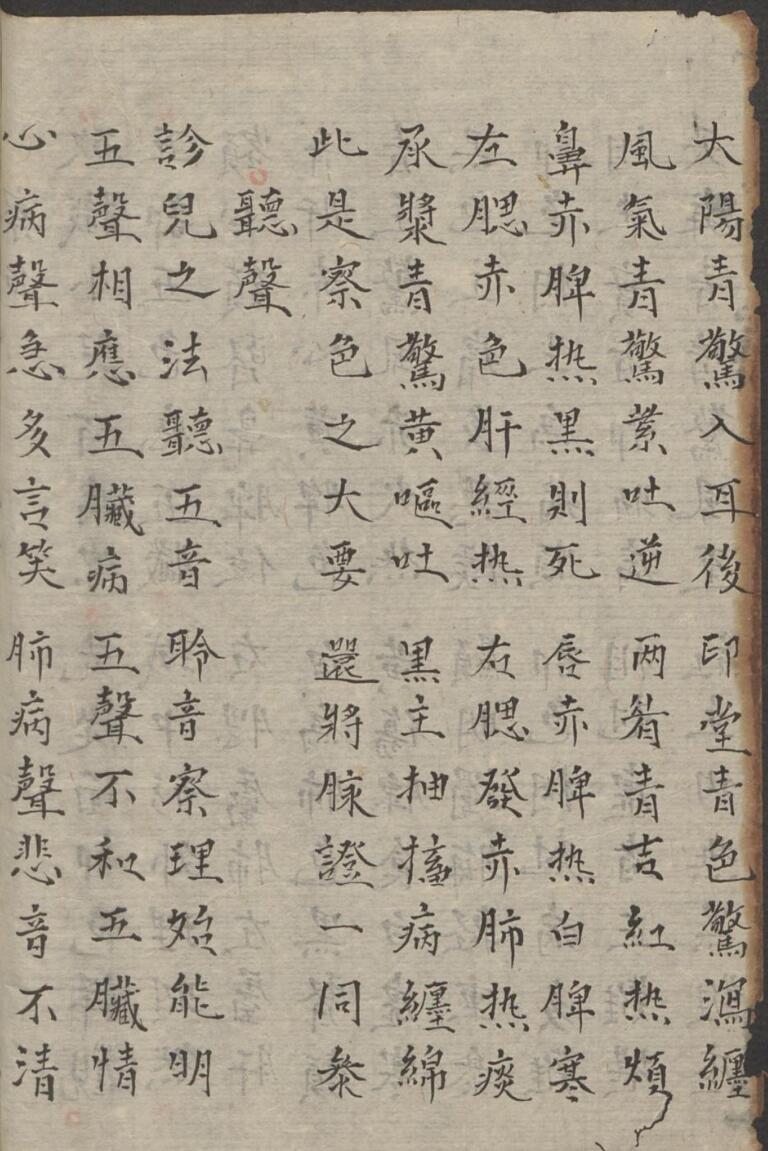 大陽青驚入耳後 印堂青色驚瀉纏
風氣青驚業吐逆 两眉青吉紅热煩
鼻赤脾热黑則死 唇赤脾热白脾寒
左腮赤色肝經热 右腮發赤肺热痰
承漿青驚黄嘔吐 黑主抽搐病纏綿
此是察色之大要 還將脉證一同叅
聽聲
診兒之法聽五音 聆音察理始能明
五聲相應五臟病 五聲不和五臟情
心病聲急多言笑 肺病聲悲音不清